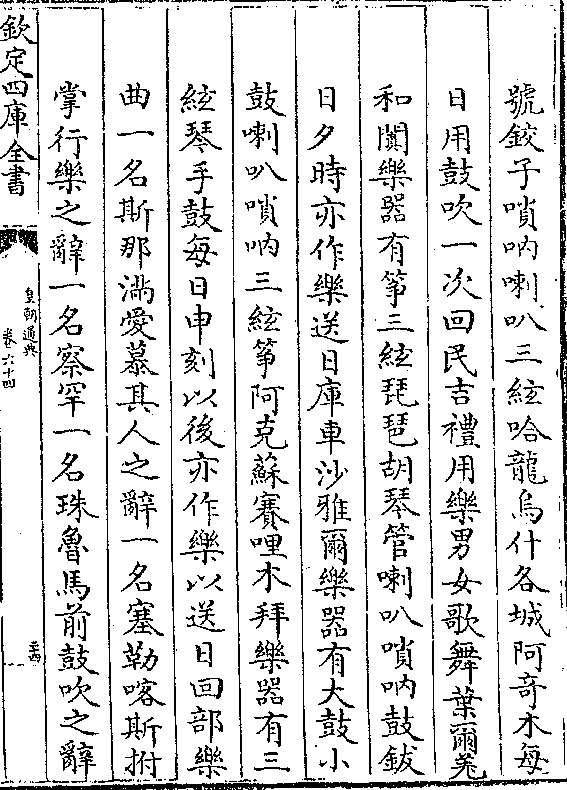 號鉸子嗩吶喇叭三絃哈龍烏什各城阿奇木每
日用鼓吹一次回民吉禮用樂男女歌舞葉爾羌
和闐樂器有箏三絃琵琶胡琴管喇叭嗩吶鼓鈸
日夕時亦作樂送日庫車沙雅爾樂器有大鼓小
鼓喇叭嗩吶三絃箏阿克蘇賽哩木拜樂器有三
絃琴手鼓每日申刻以後亦作樂以送日回部樂
曲一名斯那滿愛慕其人之辭一名塞勒喀斯拊
掌行樂之辭一名察罕一名珠魯馬前鼓吹之辭
欽定四庫全書
皇朝通典
卷六十四
三十四